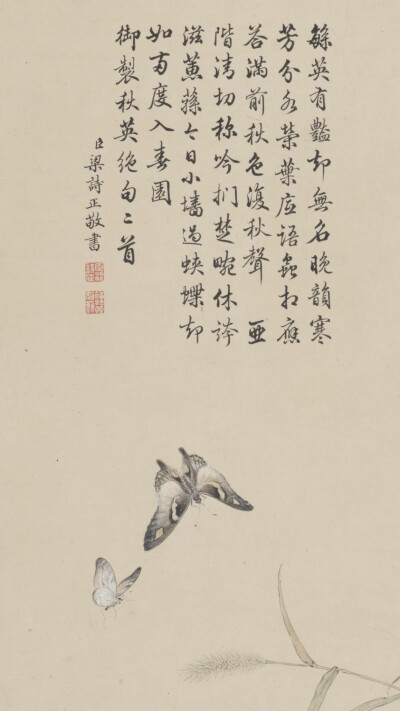 緐英有豔却無名晚韻寒
芳分外榮葉底語蟲相應
答滿前秋色復秋聲 亞
階清切称吟捫楚畹休誇
滋蕙蓀今日小墻過蛺蝶却
如再度入春園
御製秋英絕句二首
臣梁詩正敬書